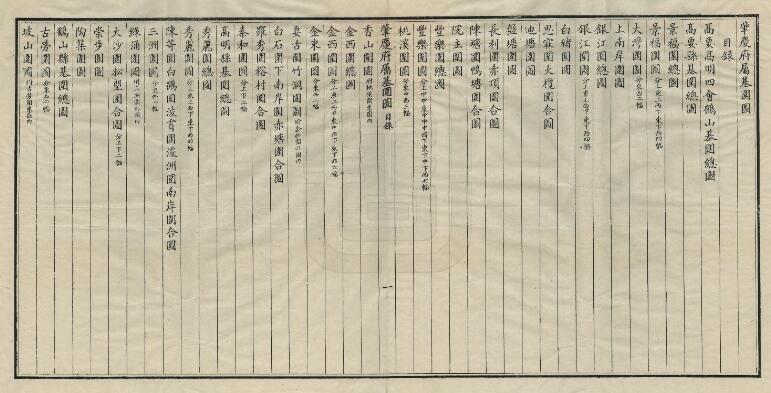 肇慶府屬基圍圖
目錄
高要高明四會鶴山基圍總圖
高要縣基圍總圖
景福圍總圖
景福圍圖
大灣圍圖
上南岸圍圖
銀江圍總圖
銀江圍圖
白豬圍圖
思霖圍大欖圍合圖
迪塘圍圖
盤塘圍圖
長利圍赤頂圍合圖
陳塘圍鴨塘圍合圖
院主圍圖
豐樂圍總圖
豐樂圍圖
桃溪圍圖
肇慶府屬基圍圖 目錄 一
香山圍圖
金西圍總圖
金西圍圖
金東圍圖
要古圍竹洞圍圖
白石圍下南岸圍赤塘圍合圖
羅秀圍裕村圍合圖
泰和圍圖 分上下二幅
高明縣基圍總圖
秀麗圍總圖
秀麗圍圖
陳等圍白鴿圍浚霄圍浚洲圍南岸圍合圖
三洲圍圖
綠涌圍圖
大沙圍松塱圍合圖 分上下二幅
崇步圍圖
陶築圍圖
鶴山縣基圍總圖
古勞圍圖
坡山圍圖